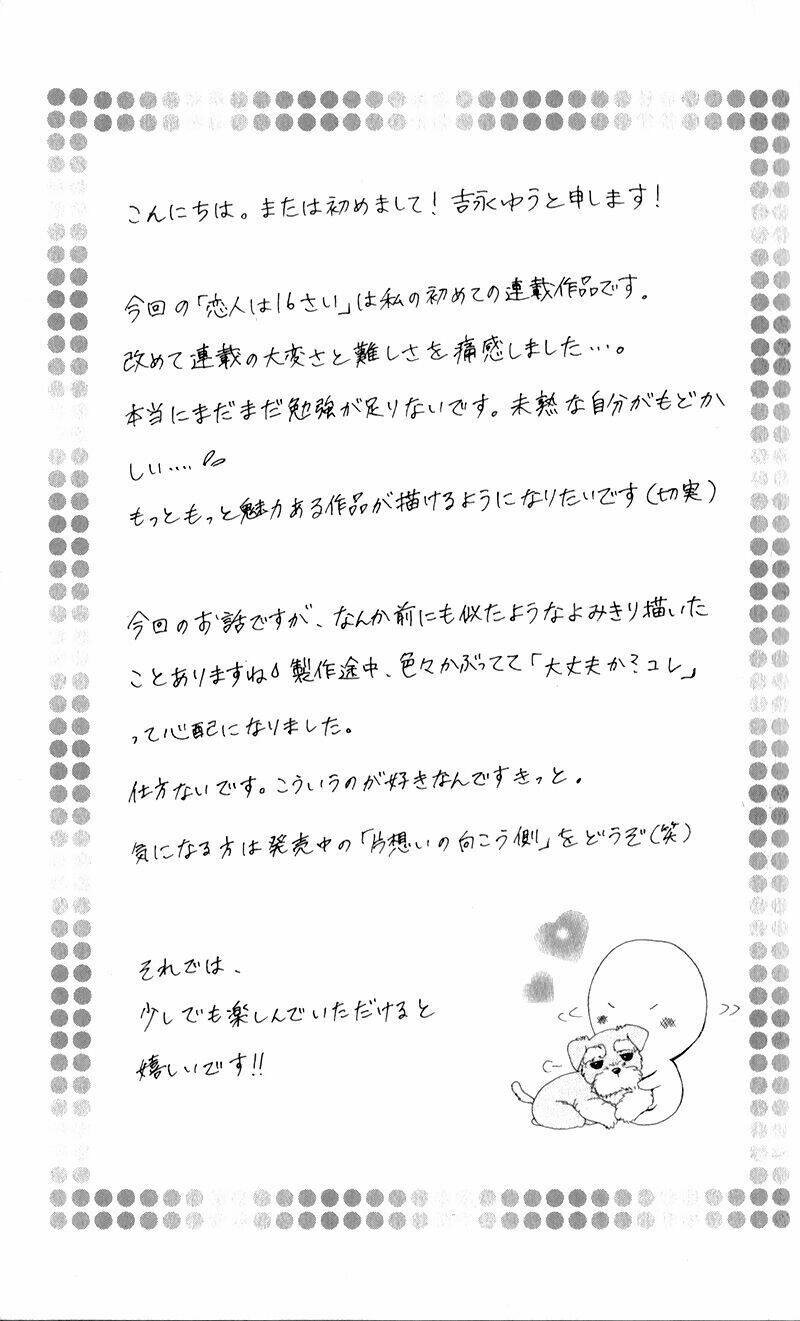 こんにちは。または初めまして！吉永ゆうと申します！
今回の「恋人は16さい」は私の初めての連載作品です。
改めて連載の大変さと難しさを痛感しました…。
本当にまだまだ勉強が足りないです。未熟な自分がもどか
しい….
もっともっと魅力ある作品が描けるようになりたいです(切実)
今回のお話ですが、なんか前にも似たようなよみきり描いた
ことありますね 製作途中、色々かぶってて「大丈夫か？コレ」
って心配になりました。
仕方ないです。こういうのが好きなんですきっと。
気になる方は発売中の「片想いの向こう側」をどうぞ(笑)
それでは、
少しでも楽しんでいただけると
嬉しいです!!